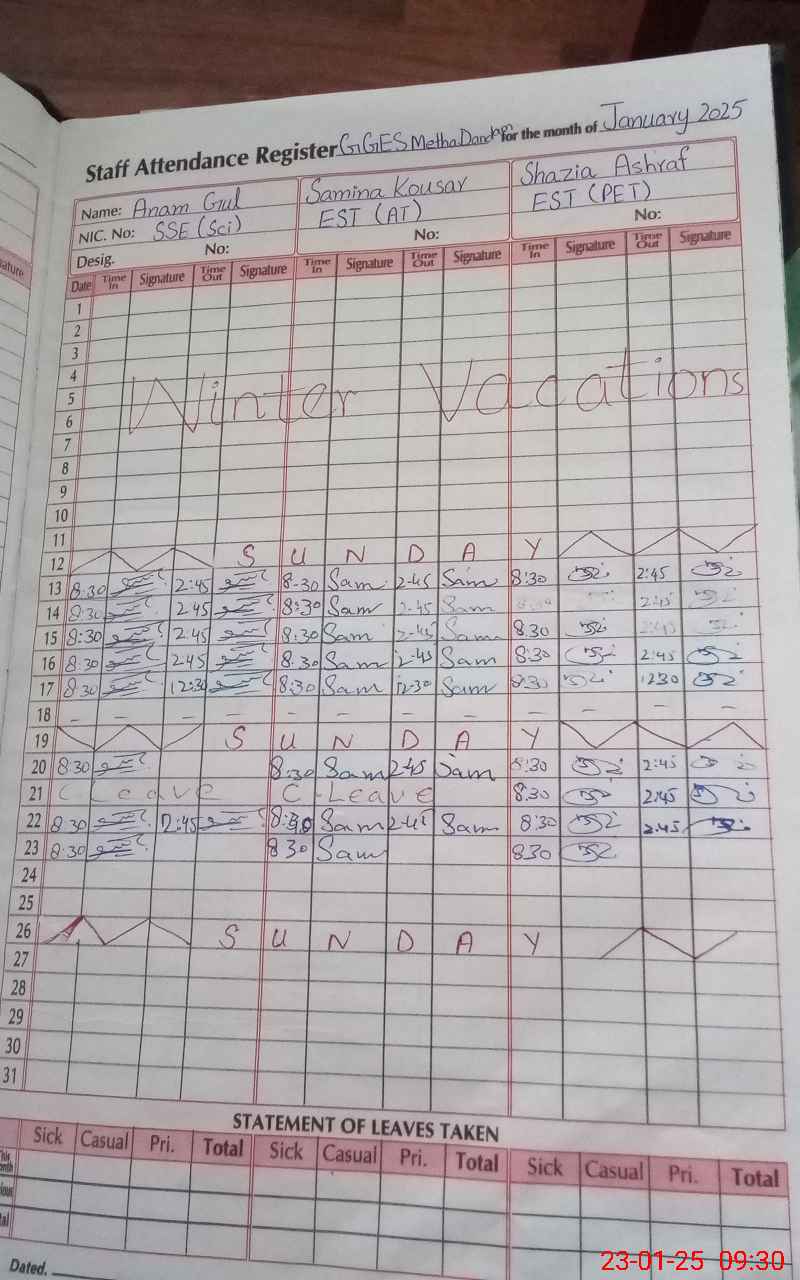 Staff Attendance Register GGES Metha Dandap for the month of January 2025
Name: Anam Gul Samina Kousar Shazia Ashraf
NIC. No: SSE (Sci) EST (AT) EST (PET)
Desig. No: No: No:
Date Time In Signature Time Out Signature Time In Signature Time Out Signature Time In Signature Time Out Signature
1
2
3
4
5 Winter Vacations
6
7
8
9
10
11
12 SUNDAY
13 8:30 2:45 8:30 Sam 2-45 Sam 8:30 2:45
14 8:30 2.45 8:30 Sam 2-45 Sam 2:45
15 8:30 2.45 8:30 Sam 2-45 Sam 8.30
16 8:30 2.45 8:30 Sam 2-45 Sam 8:30 2:45
17 8:30 12:30 8:30 Sam 12-30 Sam 8:30 1230
18 – – – – – – – – – – – –
19 SUNDAY
20 8:30 8:30 Sam 2-45 Sam 8:30 2:45
21 C Leave C-Leave 8.30 2:45
22 8:30 2:45 8:30 Sam 2-45 Sam 8:30 2.45
23 8:30 8 30 Sam 830
24
25
26 SUNDAY
27
28
29
30
31
STATEMENT OF LEAVES TAKEN
Sick Casual Pri. Total Sick Casual Pri. Total Sick Casual Pri. Total
Dated.
23-01-25 09:30